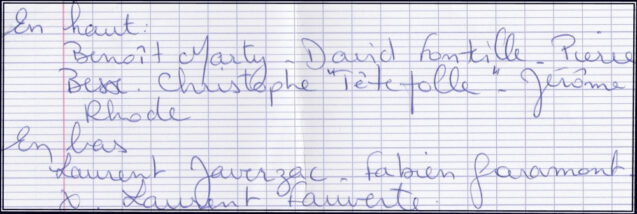 En haut:
Benoît Marty - David Fontille - Pierre
Besse. Christophe "Têtefolle" - Jérôme
Rhode
En bas
Laurent Javerzac - Fabien Garamont.
X. Laurent Fauverte.